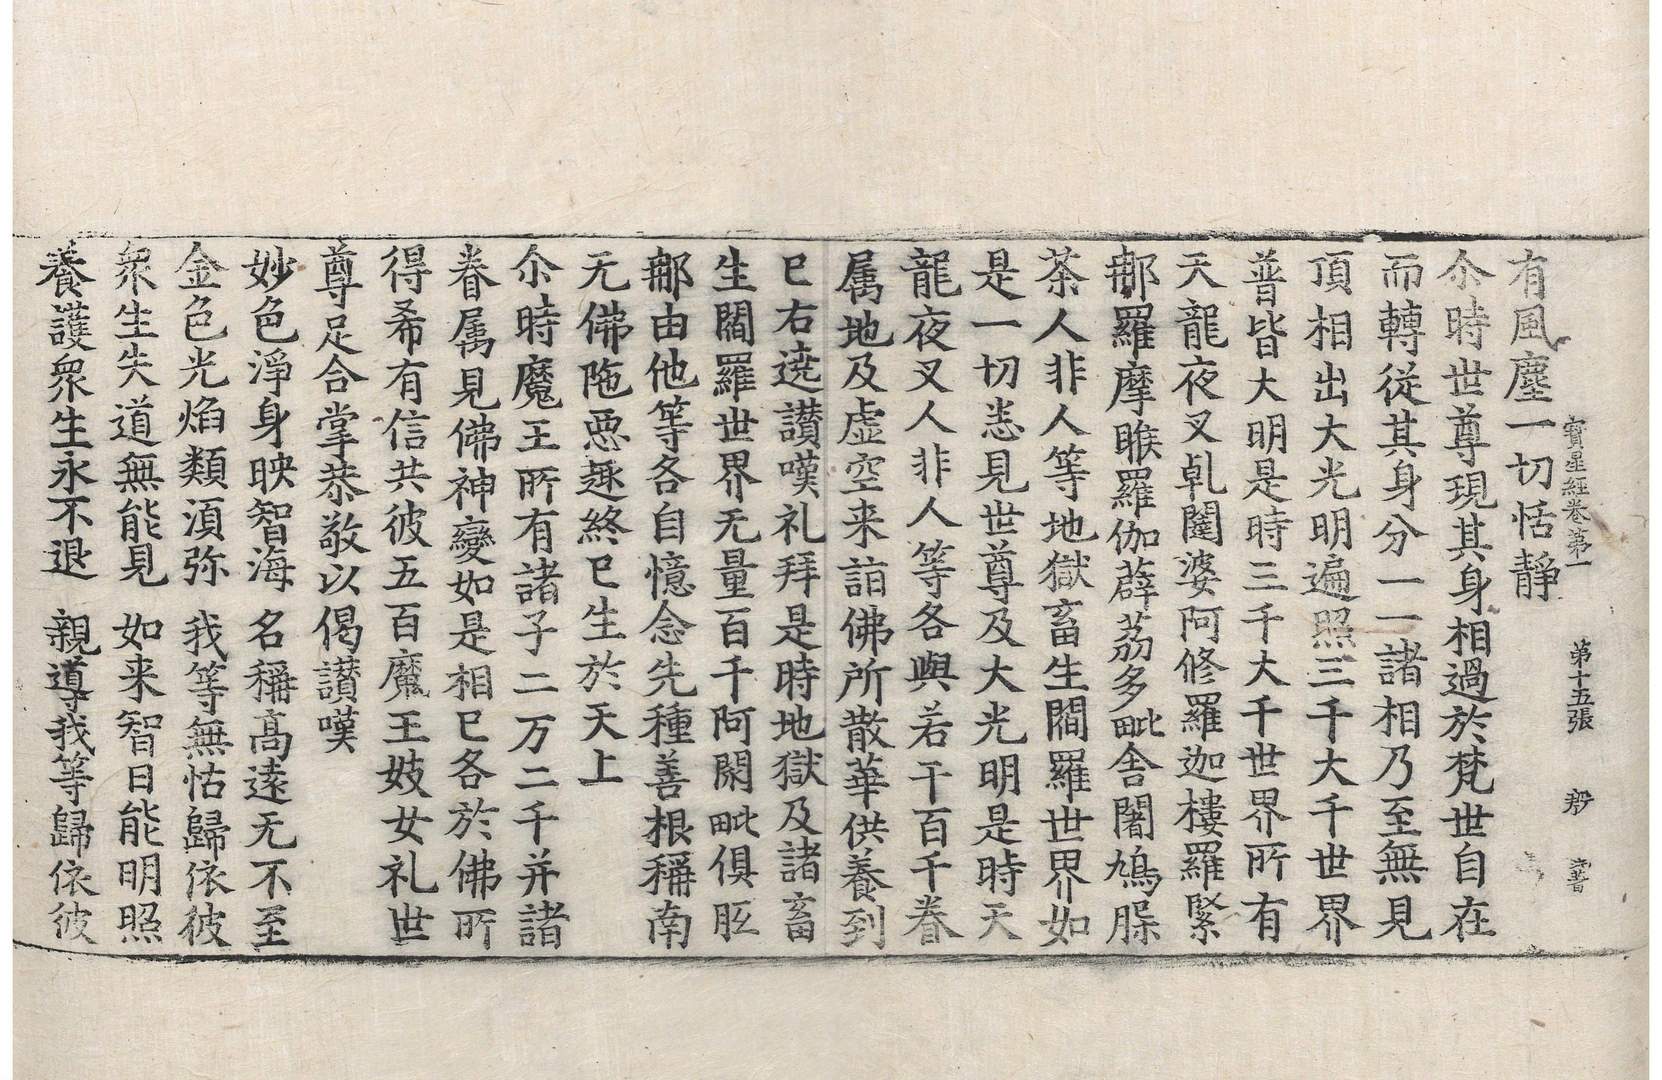 寳星經卷第一　第十五張
有風塵一切恬靜
尒時世尊現其身相過於梵世自在
而轉從其身分一一諸相乃至無見
頂相出大光明遍照三千大千世界
普皆大明是時三千大千世界所有
天龍夜叉乹闥婆阿修羅迦樓羅緊
那羅摩睺羅伽薜荔多毗舍闍鳩槃
茶人非人等地獄畜生閻羅世界如
是一切悉見世尊及大光明是時天
龍夜叉人非人等各與若干百千眷
属地及虛空来詣佛所散華供養到
已右遶讃嘆礼拜是時地獄及諸畜
生閻羅世界无量百千阿閦毗俱胝
那由他等各自憶念先種善根稱南
无佛陁惡趣終已生於天上
尒時魔王所有諸子二万二千并諸
眷属見佛神變如是相已各於佛所
得希有信共彼五百魔王妓女礼世
尊足合掌恭敬以偈讃嘆
妙色淨身映智海　名稱髙遠无不至
金色光焰類湏弥　我等無怙歸依彼
衆生失道無能見　如来智日能明照
養護衆生永不退　親導我等歸依彼